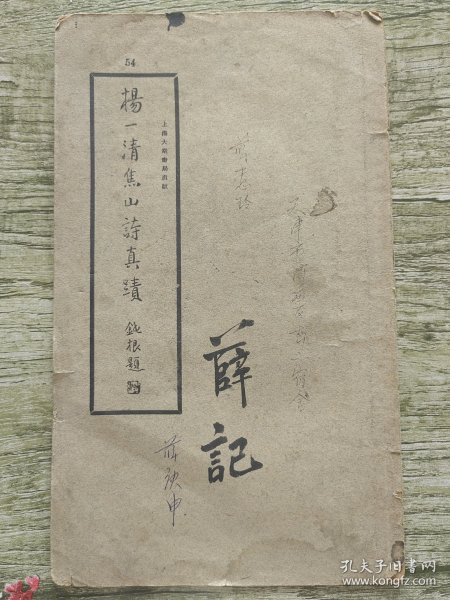 54
上海大衆書局出版
楊一清焦山詩真蹟
鈍根題
薛志玲
天津市
薛記
薛庚申
孔夫子旧书网
www.kongfz.com